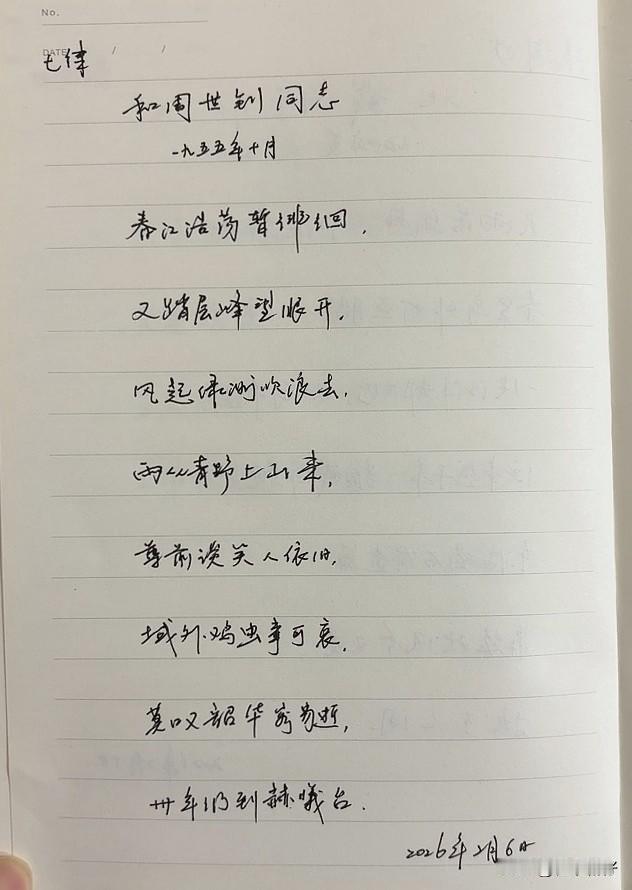 No.
DATE / /
七律
和周世钊同志
一九五五年十月
春江浩荡暂徘徊，
又踏层峰望眼开，
风起绿洲吹浪去，
雨从青野上山来，
尊前谈笑人依旧，
域外鸡虫事可哀，
莫叹韶华容易逝，
卅年仍到赫曦台．
2026年2月6日